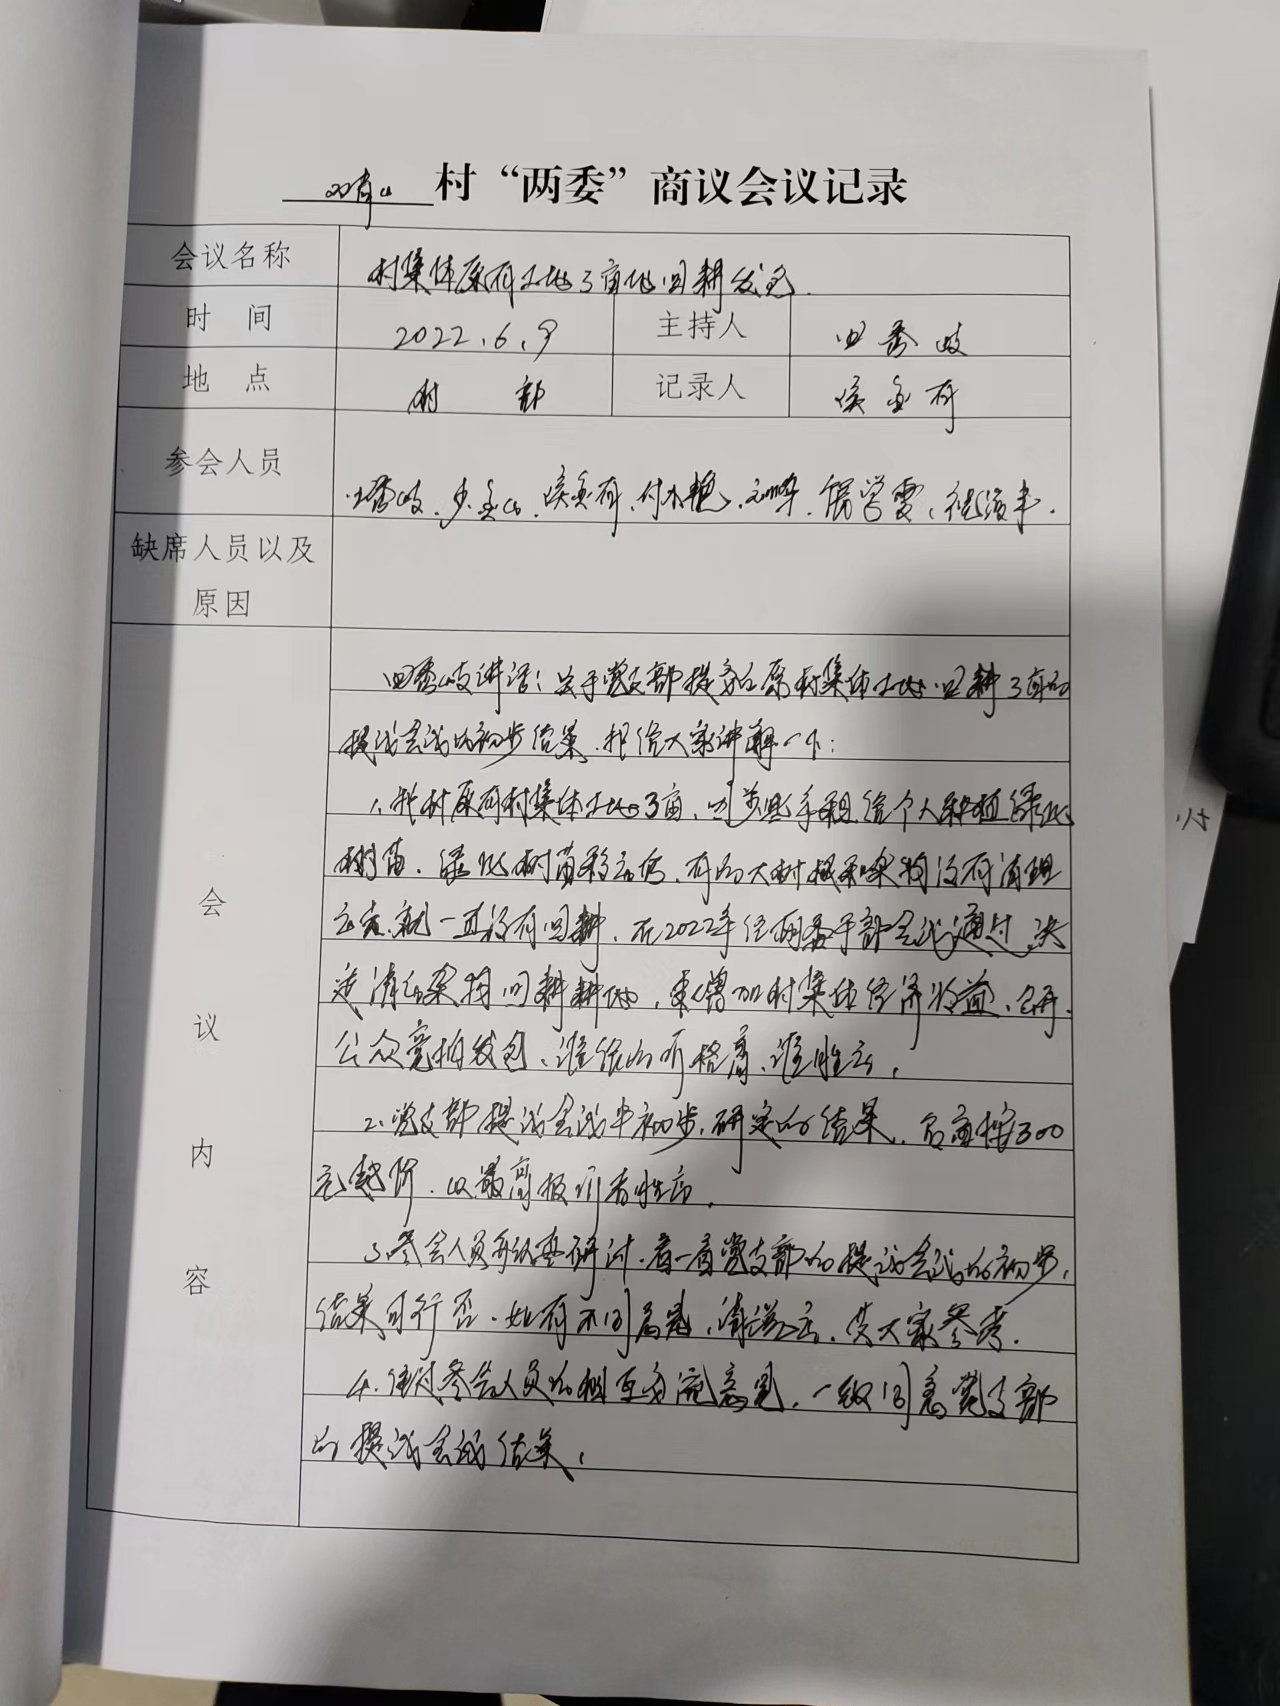 村“两委”商议会议记录
会议名称 村集体原有土地3亩地回耕发包.
时 间 2022.6.9 主持人 田秀岐
地 点 村 部 记录人 侯金有
参会人员 侯金有、
缺席人员以及
原因
会议内容
田秀岐讲话：关于党支部提交的原村集体土地回耕3亩的
提议会议的初步结果，我给大家讲解一下：
1、我村原有村集体土地3亩，租给个人种植绿化
树苗、绿化树苗移走后、有的大树根和杂物没有清理
走，就一直没有回耕，在2022年经两委干部会议通过，决
定清的杂物回耕耕地，增加村集体经济收益、
公众竞拍发包、谁给的价格高、谁胜出。
2、党支部提议会议中初步，研定的结果，每亩按300
元起价、以最高报价者胜出。
3、参会人员研讨，看一看党支部的提议会议的初步，
结果可行否、如有不同意见，请说出，供大家参考.
4、经过参会人员的相互交流意见，一致同意党支部
的提议会议结果。